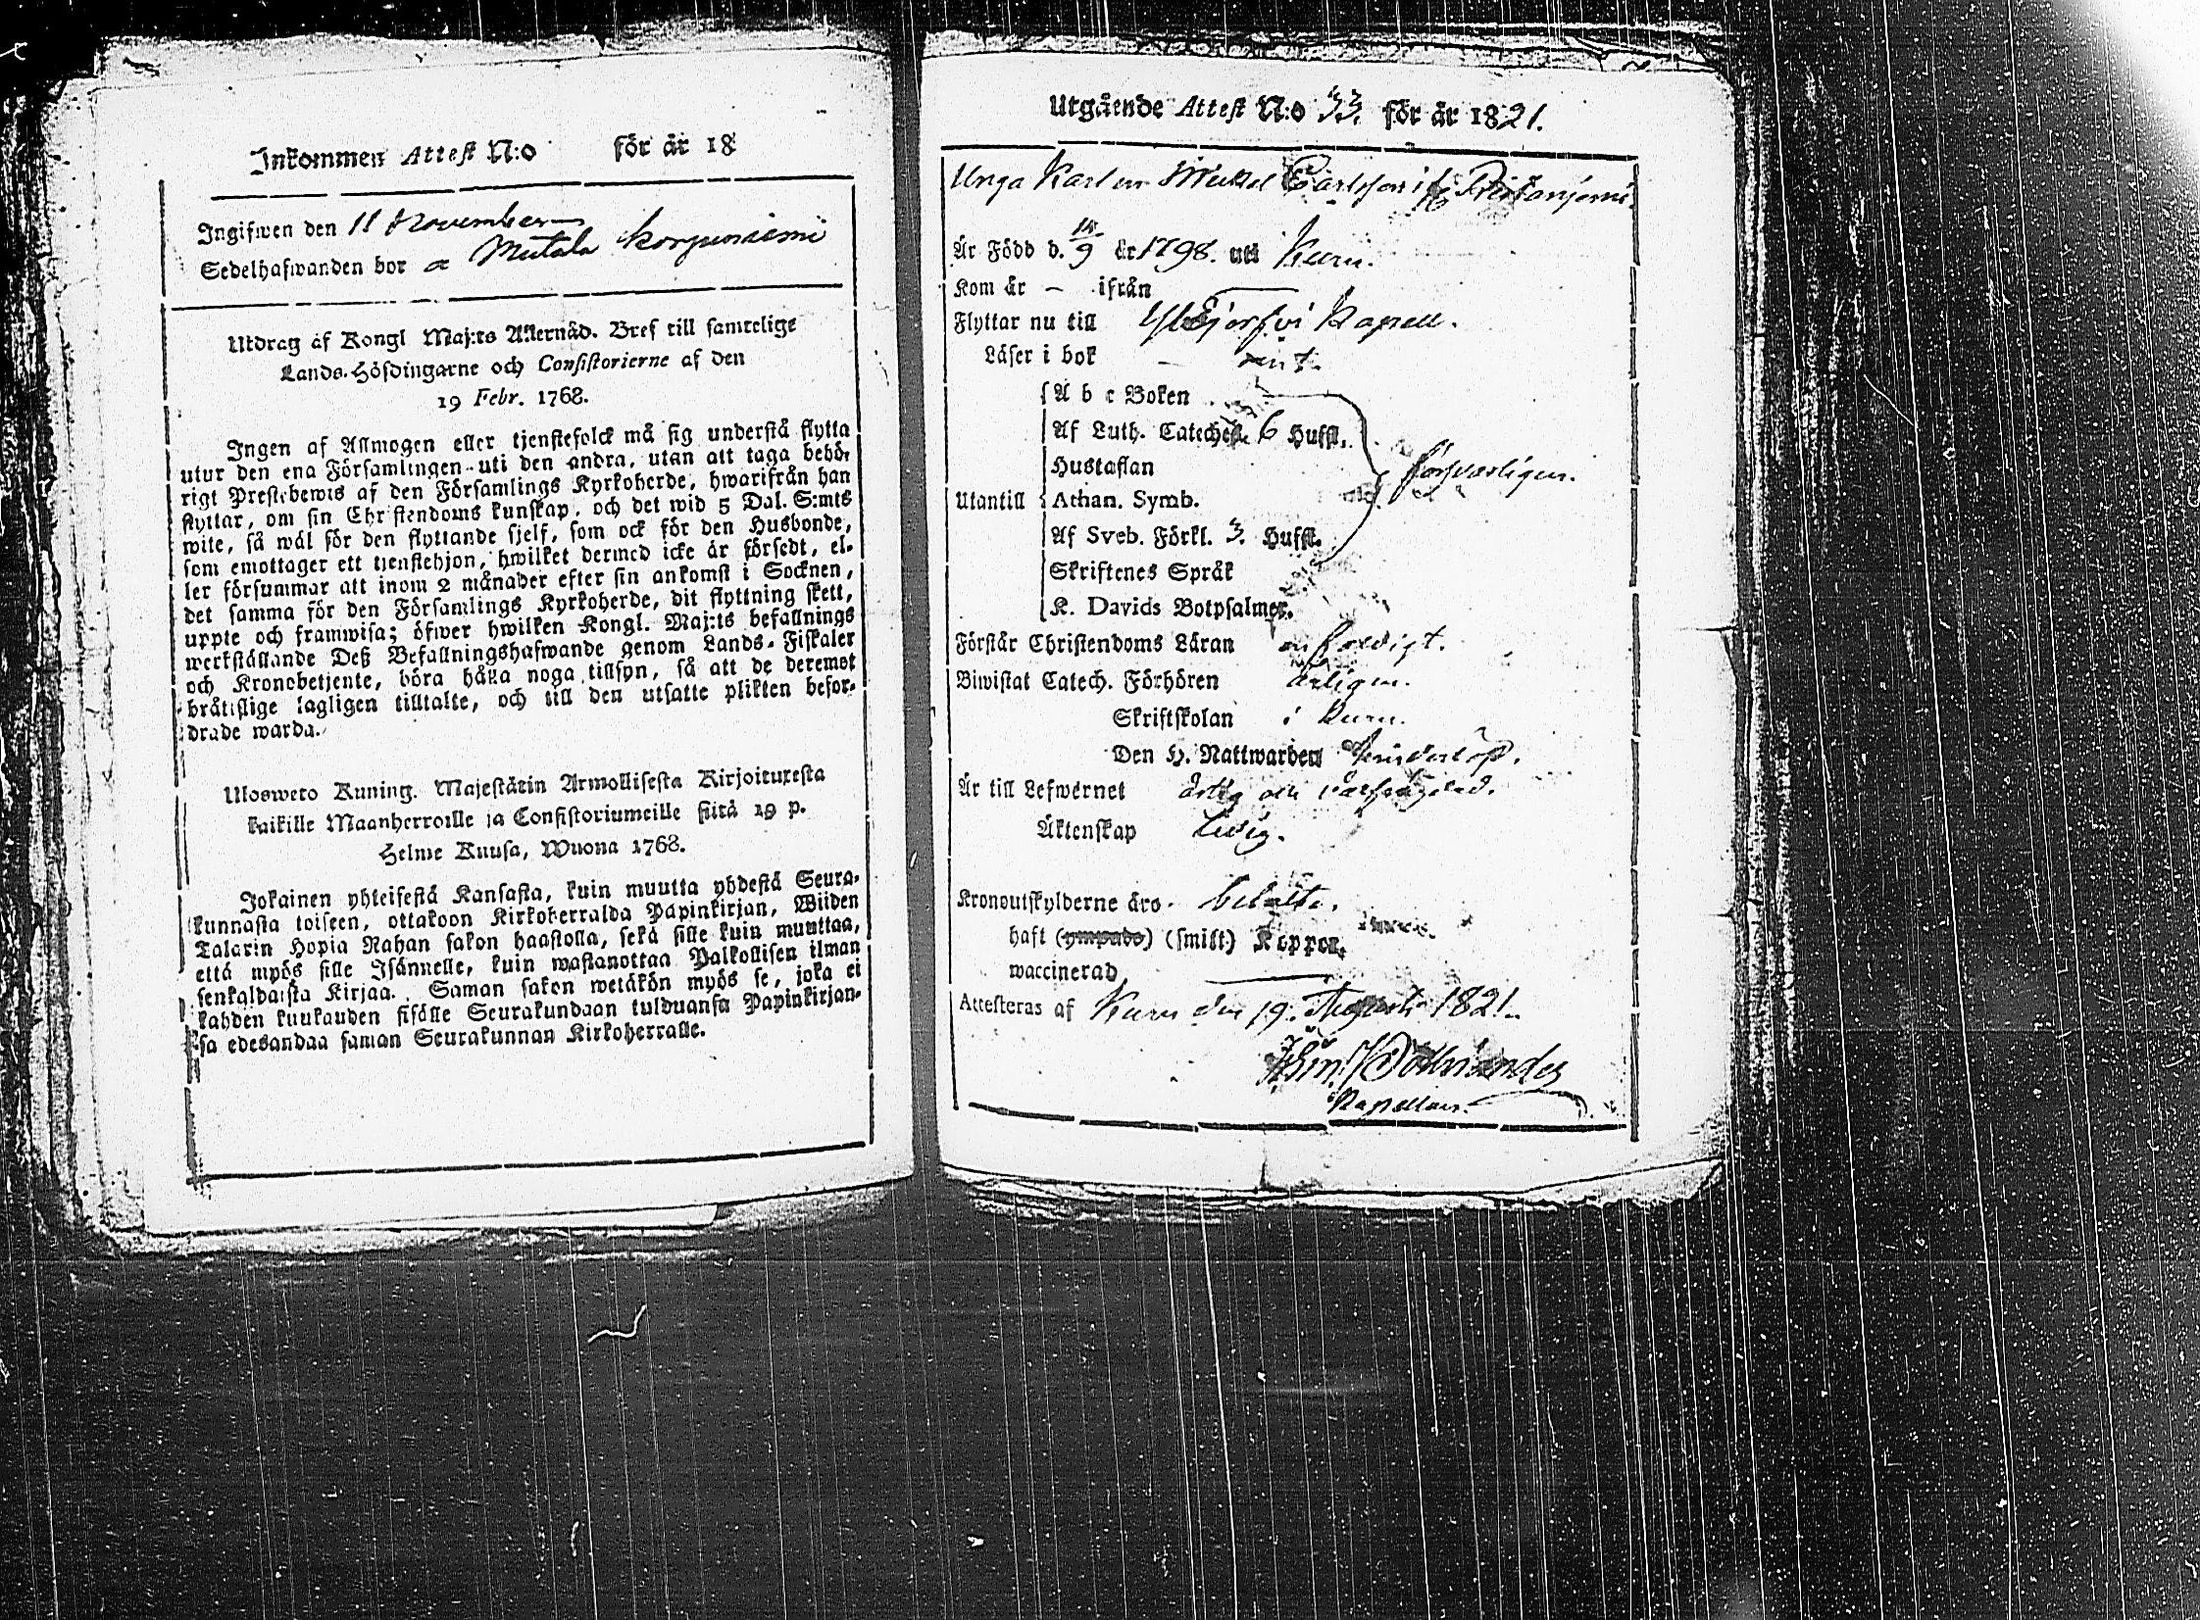 Inkommen Attest N:o för år 18
Ingifwen den 11 November
Sedelhafwanden bor a Mutala Korpuniemi
Utdrag af Kongl Maj:ts Allernåd. Bref till samtelige
Lands-Höfdingarne och Consistorierne af den
19 Febr. 1768.
Ingen af Allmogen eller tjenstefolck må sig understå flytta
utur den ena Församlingen uti den andra, utan att taga behö-
rigt Prestebewis af den Församlings Kyrkoherde, hwarifrån han
flyttar, om sin Christendoms kunskap, och det wid 5 Dal. S:mts
wite, så wäl för den flyttande sjelf, som ock för den Husbonde,
som emottager ett tjenstehjon, hwilket dermed icke är försedt, el-
ler försummar att inom 2 månader efter sin ankomst i Socknen,
det samma för den Församlings Kyrkoherde, dit flyttning skett,
uppte och framwisa; öfwer hwilken Kongl. Maj:ts befallnings
werkställande Deß Befallningshafwande genom Lands-Fiskaler
och Kronobetjente, böra hålla noga tillsyn, så att de deremot
bråtislige lagligen tilltalte, och till den utsatte plikten befor-
drade warda.
Ulosweto Kuning. Majestätin Armollisesta Kirjoituxesta
kaikille Maanherroille ja Consistoriumeille siitä 19 p.
Helme Kuusa, Wuona 1768.
Jokainen yhteisestä Kansasta, kuin muutta yhdestä Seura-
kunnasta toiseen, ottakoon Kirkoherralda Papinkirjan, Wiiden
Talarin Hopia Rahan sakon haastolla, sekä sille kuin muuttaa,
että myös sille Isännelle, kuin wastanottaa Palkollisen ilman
senkaldaista Kirjaa. Saman sakon wetäkön myös se, joka ei
kahden kuukauden sisälle Seurakundaan tulduansa Papinkirjan-
sa edesandaa saman Seurakunnan Kirkoherralle.
Utgående Attest N:o 33. för år 1821.
Unga Karlen Mickel Carlsson if
Är Född d. 14/9 år 1798. uti Kuru.
Kom är – ifrån
Flyttar nu till Ylöjerfvi Kapell.
Läser i bok – rent.
A b c Boken
Af Luth. Cateches. 6 Hufst.
Hustaflan
Utantill Athan. Symb. försvarligen.
Af Sveb. Förkl. 3. Hufst.
Skriftenes Språk
K. Davids Botpsalmer.
Förstår Christendoms Läran enfaldigt.
Biwistat Catech. Förhören årligen.
Skriftskolan i Kuru.
Den H. Nattwarden hinderlöst.
Är till Lefwernet ärlig och
Äktenskap ledig.
Kronoutskylderne äro betalte.
haft (ympade) (smitt) Koppor.
waccinerad
Attesteras af Kuru den 19. Augusti 1821.
Kapellan.